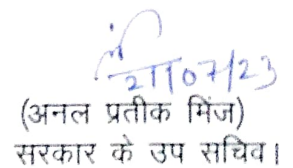 21/07/23
(अनल प्रतीक मिंज)
सरकार के उप सचिव।